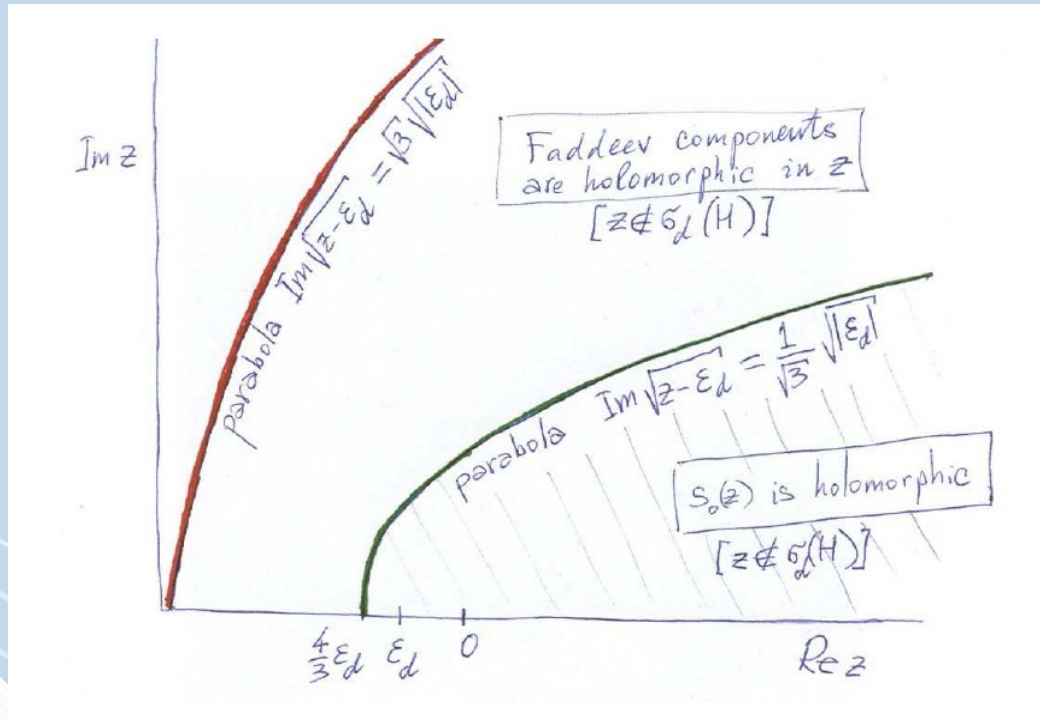 Im z
parabola Im√(z-ε_d) = √3 √|ε_d|
Faddeev components
are holomorphic in z
[z∉σ_d(H)]
parabola Im√(z-ε_d) = 1/√3 √|ε_d|
S_0(z) is holomorphic
[z∉σ_d(H)]
4/3 ε_d ε_d 0
Re z